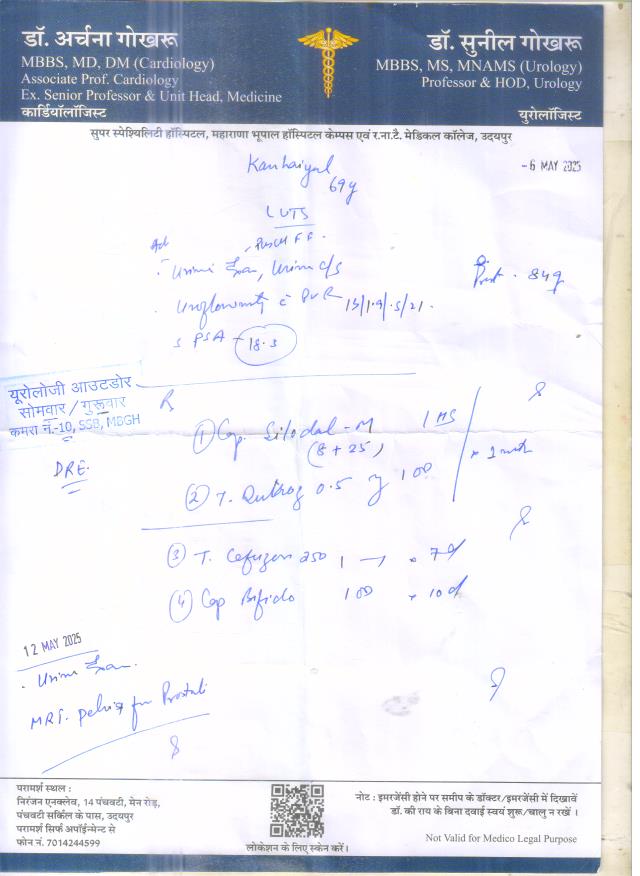 डॉ. अर्चना गोखरू
MBBS, MD, DM (Cardiology)
Associate Prof. Cardiology
Ex. Senior Professor & Unit Head, Medicine
कार्डियॉलॉजिस्ट
डॉ. सुनील गोखरू
MBBS, MS, MNAMS (Urology)
Professor & HOD, Urology
यूरोलॉजिस्ट
सुपर स्पेश्यिलिटी हॉस्पिटल, महाराणा भूपाल हॉस्पिटल केम्पस एवं र.ना.टै. मेडिकल कॉलेज, उदयपुर
-6 MAY 2025
69y
LUTS
Urine Exam, Urine c/s
Prost. 84g
Uroflowmetry c PVR
S PSA - 18.3
यूरोलोजी आउटडोर
सोमवार / गुरूवार
कमरा नं.-10, SSB, MBGH
DRE.
(1) Cap. Silodal-M 1 HS
(8 + 25)
(2) T. 0.5 1 OD
(3) T. 250 1 — 7d
(4) Cap Bifido 1 OD x 10d
12 MAY 2025
Urine Exam.
MRI. pelvis for Prostate
परामर्श स्थल :
निरंजन एनक्लेव, 14 पंचवटी, मेन रोड़,
पंचवटी सर्किल के पास, उदयपुर
परामर्श सिर्फ अपॉईन्मेन्ट से
फोन नं. 7014244599
लोकेशन के लिए स्केन करें।
नोट : इमरजेंसी होने पर समीप के डॉक्टर/इमरजेंसी में दिखावें
डॉ. की राय के बिना दवाई स्वयं शुरू/चालु न रखें ।
Not Valid for Medico Legal Purpose